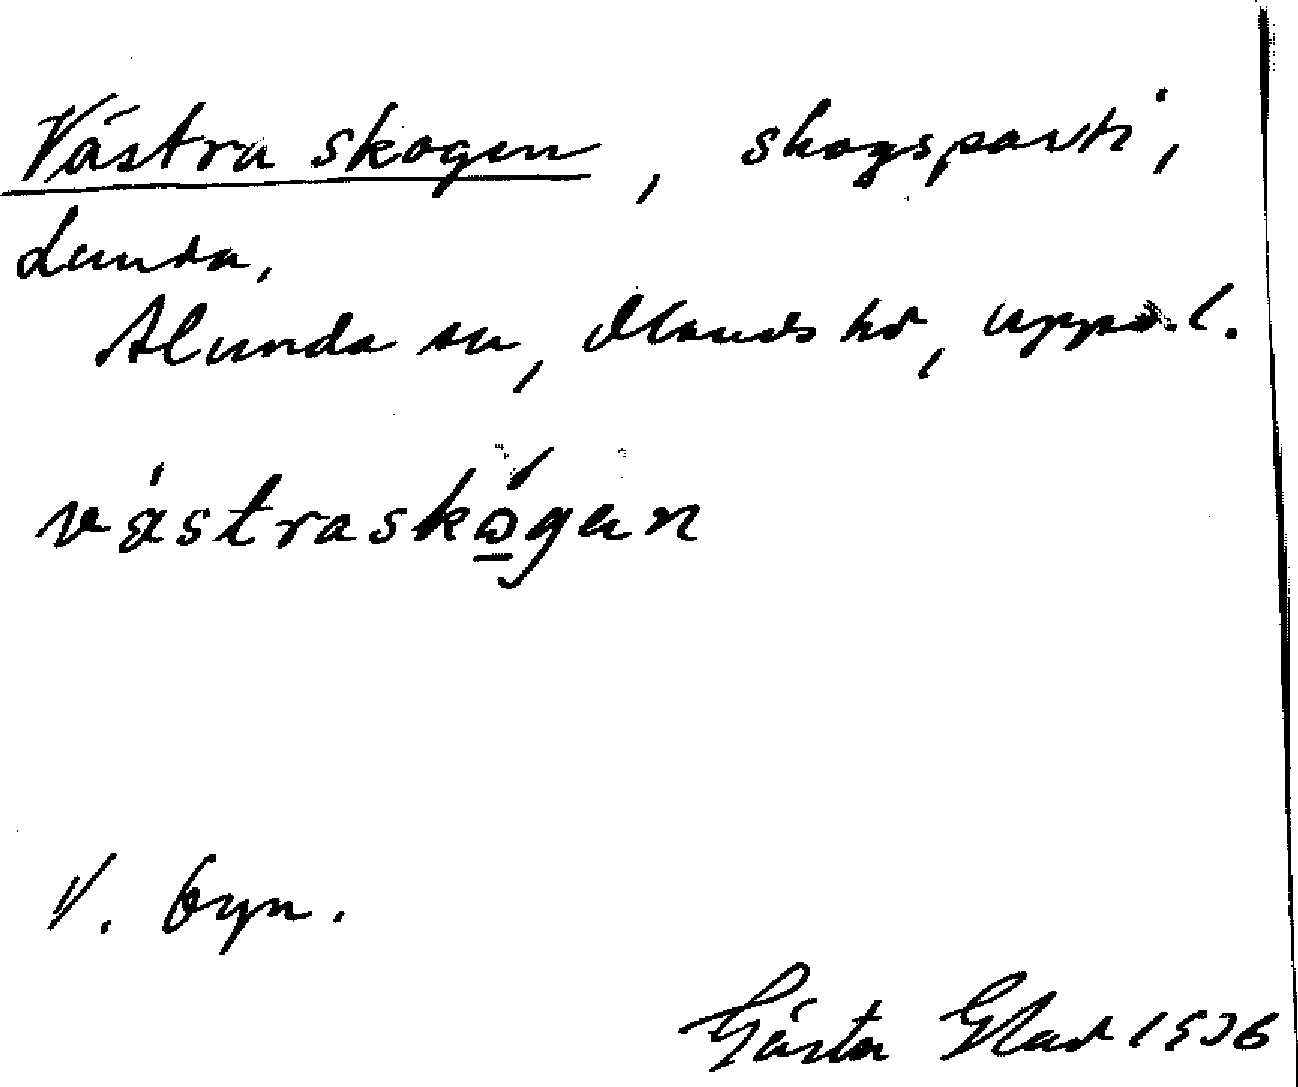 Västra skogen, skogsparti,
Lunda,
Alunda sn, Olands hd, Upps. l.
västraskógan
V. byn.
Gösta Glad 1936